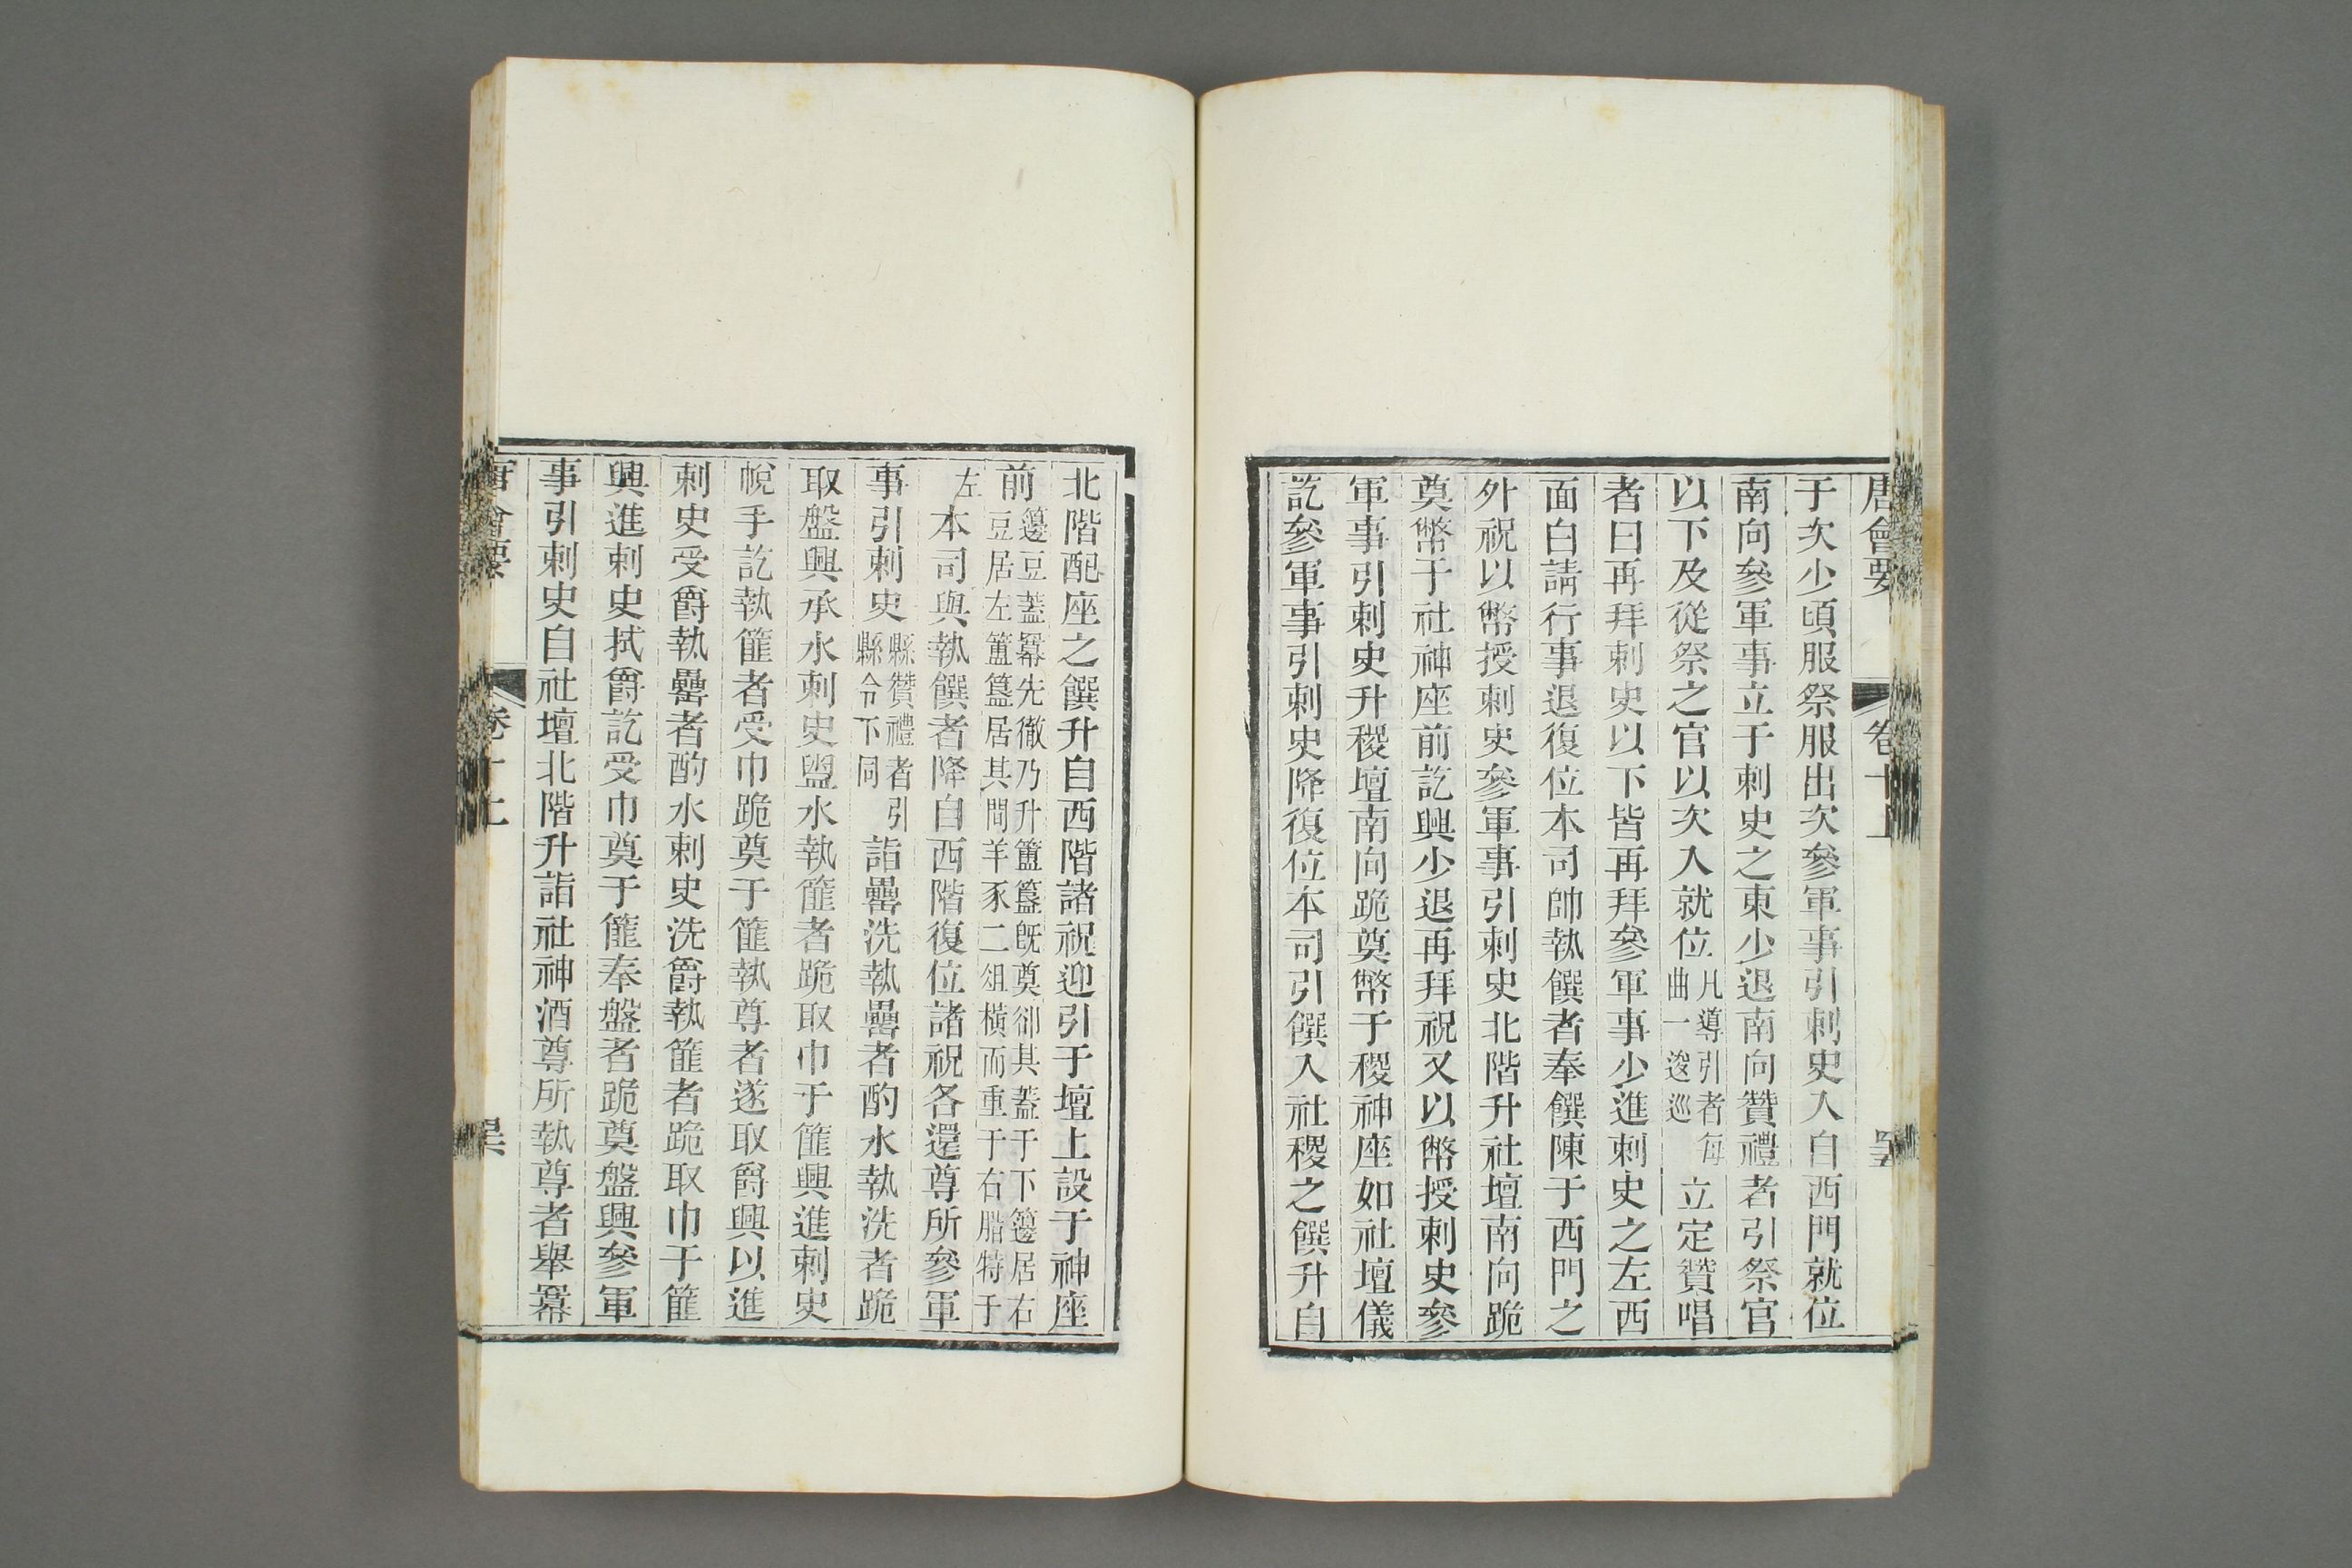 唐會要 卷十上
于次少頃服祭服出次參軍事引刺史入自西門就位
南向參軍事立于刺史之東少退南向贊禮者引祭官
以下及從祭之官以次入就位凡導引者每曲一逡巡立定贊唱
者曰再拜刺史以下皆再拜參軍事少進刺史之左西
面白請行事退復位本司帥執饌者奉饌陳于西門之
外祝以幣授刺史參軍事引刺史北階升社壇南向跪
奠幣于社神座前訖興少退再拜祝又以幣授刺史參
軍事引刺史升稷壇南向跪奠幣于稷神座如社壇儀
訖參軍事引刺史降復位本司引饌入社稷之饌升自
北階配座之饌升自西階諸祝迎引于壇上設于神座
前籩豆蓋冪先徹乃升簠簋既奠卻其蓋于下籩居右豆居左簠簋居其間羊豕二俎橫而重于右腊特于
左本司與執饌者降自西階復位諸祝各還尊所參軍
事引刺史縣贊禮者引縣令下同詣罍洗執罍者酌水執洗者跪
取盤興承水刺史盥水執篚者跪取巾于篚興進刺史
帨手訖執篚者受巾跪奠于篚執尊者遂取爵興以進
刺史受爵執罍者酌水刺史洗爵執篚者跪取巾于篚
興進刺史拭爵訖受巾奠于篚奉盤者跪奠盤興參軍
事引刺史自社壇北階升詣社神酒尊所執尊者舉冪
唐會要 卷十上